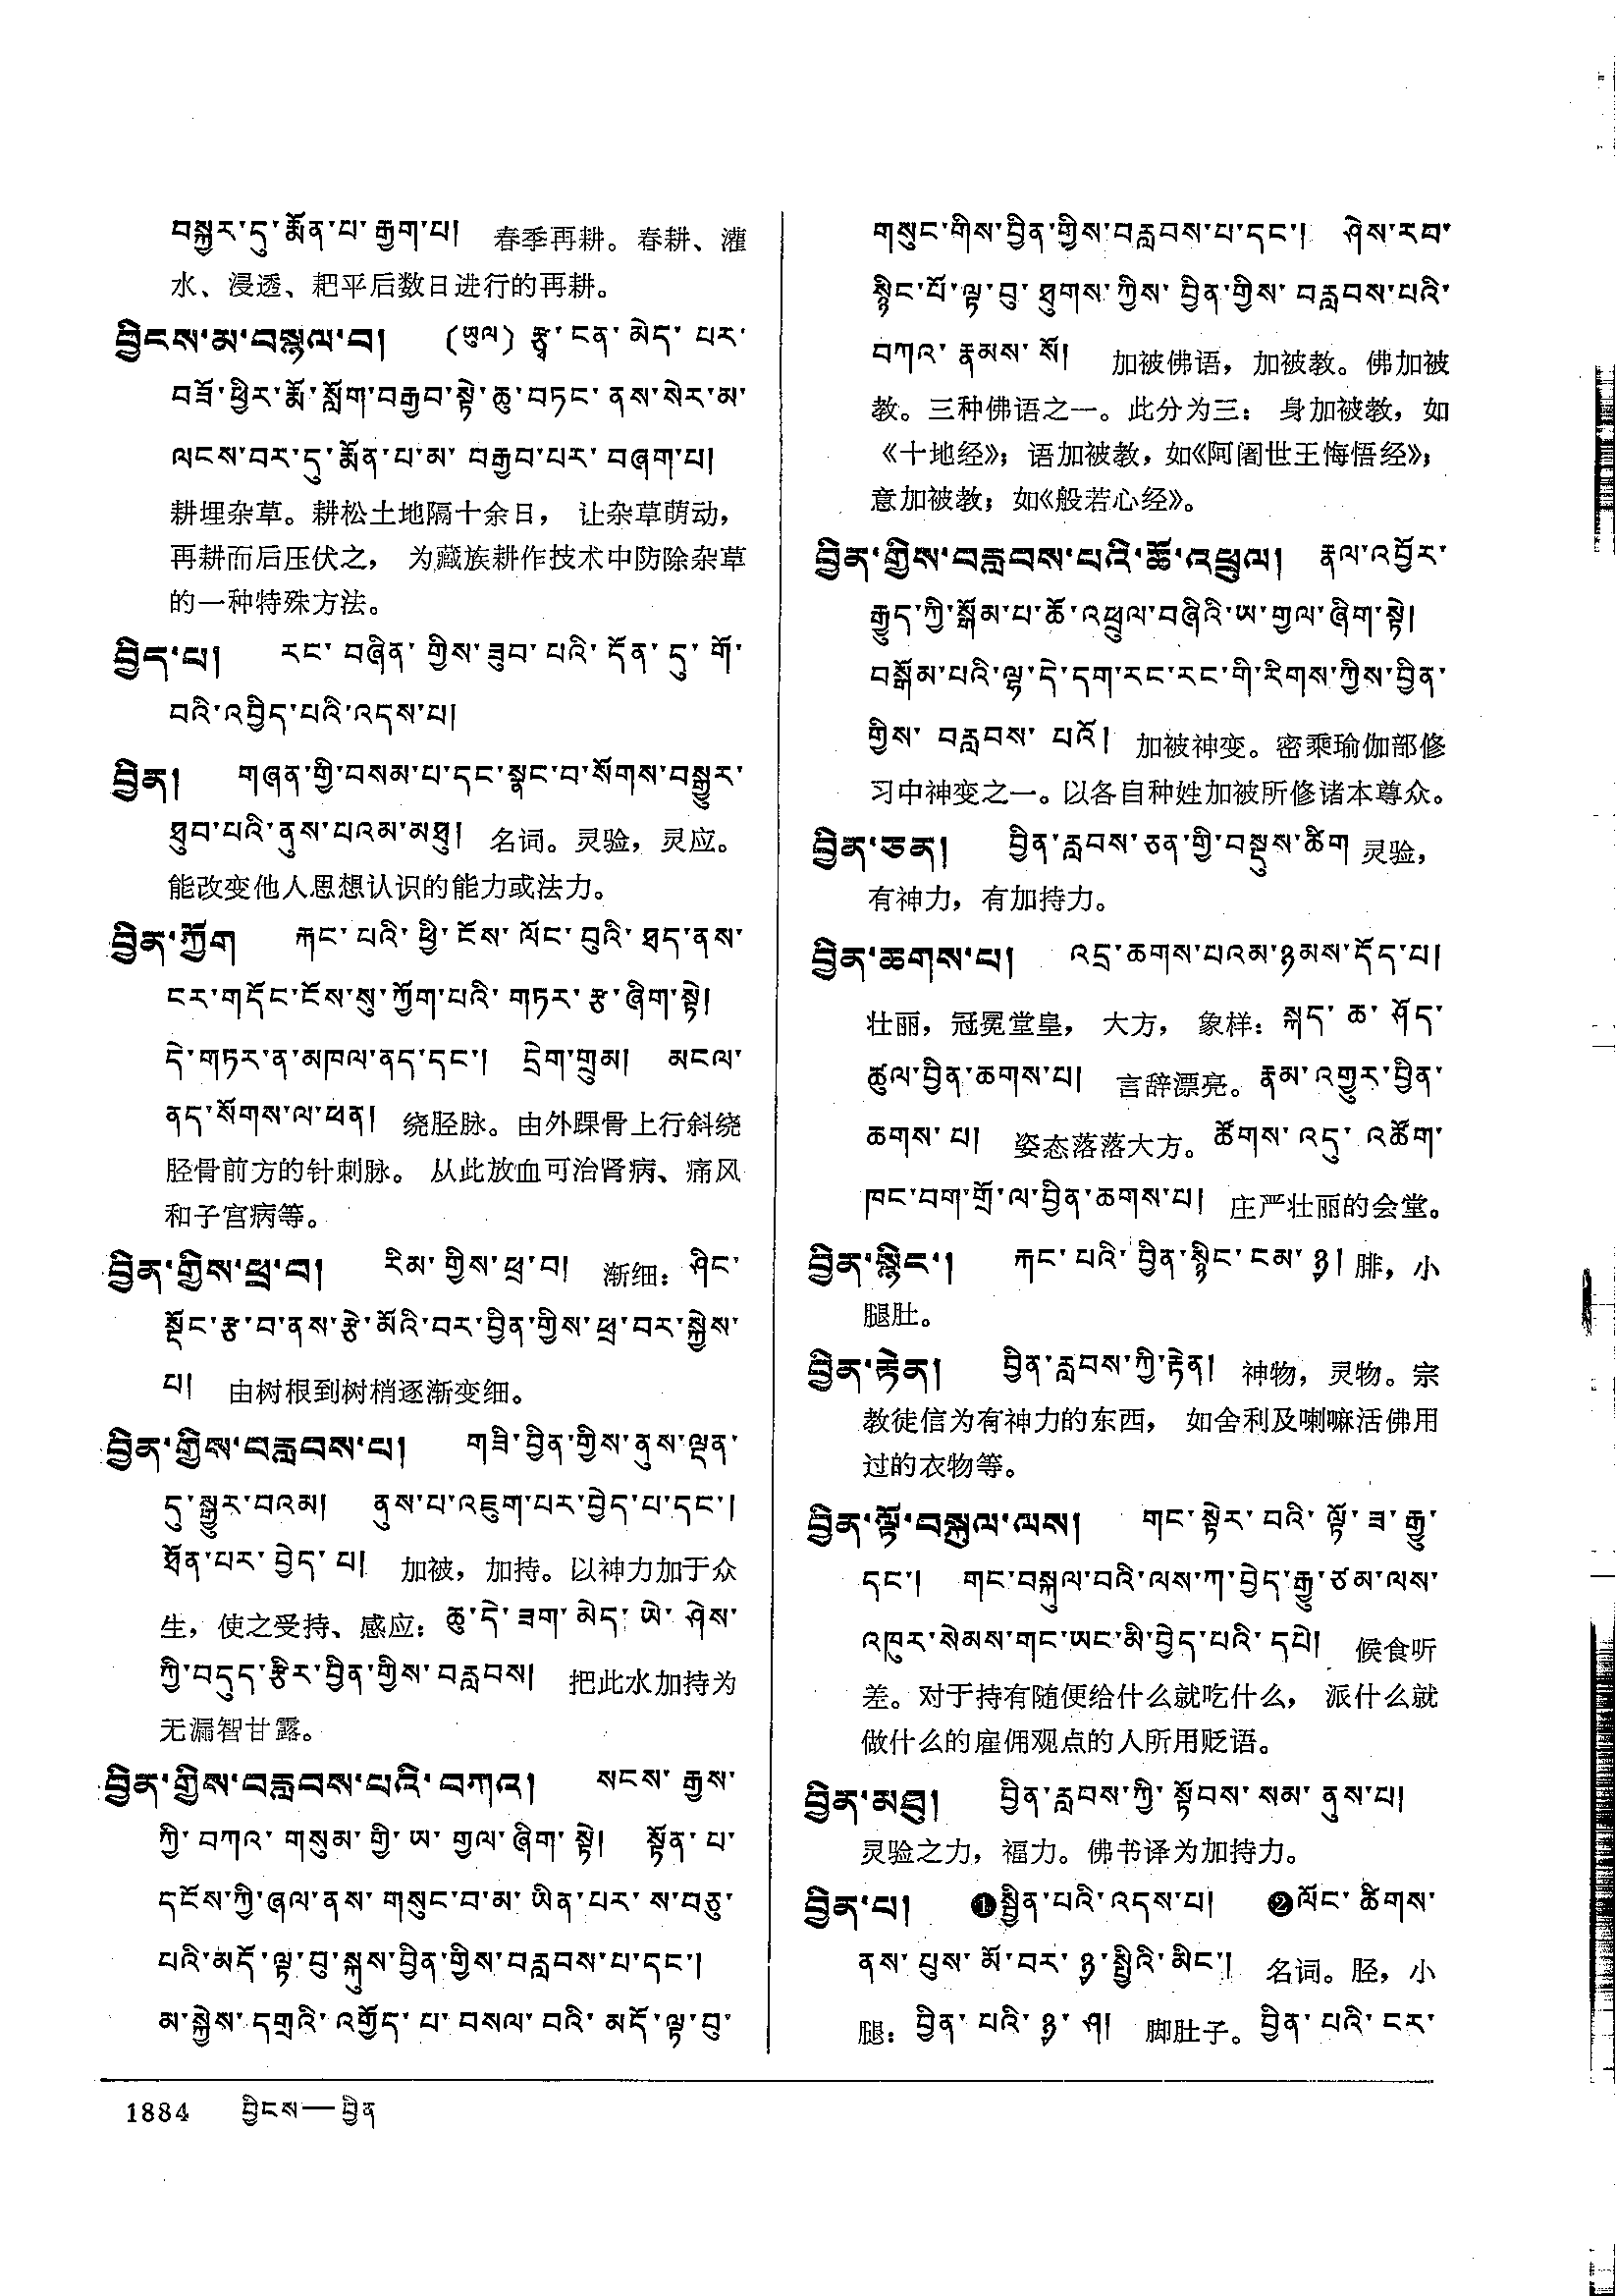 བསྐྱར་དུ་རྨོན་པ་རྒྱག་པ། 春季再耕。春耕、灌
水、浸透、耙平后数日进行的再耕。
བྱིངས་མ་བསྙལ་བ། (ཡུལ) རྩྭ་ངན་མེད་པར་
བཟོ་ཕྱིར་རྨོ་སློག་བརྒྱབ་སྟེ་ཆུ་བཏང་ནས་སེར་མ་
ལངས་བར་དུ་རྨོན་པ་མ་བརྒྱབ་པར་བཞག་པ།
耕埋杂草。耕松土地隔十余日，让杂草萌动，
再耕而后压伏之，为藏族耕作技术中防除杂草
的一种特殊方法。
བྱིད་པ། རང་བཞིན་གྱིས་ཟུབ་པའི་དོན་དུ་གོ་
བའི་འབྱིད་པའི་འདས་པ།
བྱིན། གཞན་གྱི་བསམ་པ་དང་སྣང་བ་སོགས་བསྒྱུར་
ཐུབ་པའི་ནུས་པའམ་མཐུ། 名词。灵验，灵应。
能改变他人思想认识的能力或法力。
བྱིན་ཀྱོག རྐང་པའི་ཕྱི་ངོས་ལོང་བུའི་ཐད་ནས་
ངར་གདོང་ངོས་སུ་ཀྱོག་པའི་གཏར་རྩ་ཞིག་སྟེ།
དེ་གཏར་ན་མཁལ་ནད་དང་། དྲེག་གྲུམ། མངལ་
ནད་སོགས་ལ་ཕན། 绕胫脉。由外踝骨上行斜绕
胫骨前方的针刺脉。从此放血可治肾病、痛风
和子宫病等。
བྱིན་གྱིས་ཕྲ་བ། རིམ་གྱིས་ཕྲ་བ། 渐细：ཤིང་
སྡོང་རྩ་བ་ནས་རྩེ་མོའི་བར་བྱིན་གྱིས་ཕྲ་བར་སྐྱེས་
པ། 由树根到树梢逐渐变细。
བྱིན་གྱིས་བརླབས་པ། གཟི་བྱིན་གྱིས་ནུས་ལྡན་
དུ་སྒྱུར་བའམ། ནུས་པ་འཇུག་པར་བྱེད་པ་དང་།
ཐོན་པར་བྱེད་པ། 加被，加持。以神力加于众
生，使之受持、感应：ཆུ་དེ་ཟག་མེད་ཡེ་ཤེས་
ཀྱི་བདུད་རྩིར་བྱིན་གྱིས་བརླབས། 把此水加持为
无漏智甘露。
བྱིན་གྱིས་བརླབས་པའི་བཀའ། སངས་རྒྱས་
ཀྱི་བཀའ་གསུམ་གྱི་ཡ་གྱལ་ཞིག་སྟེ། སྟོན་པ་
དངོས་ཀྱི་ཞལ་ནས་གསུང་བ་མ་ཡིན་པར་ས་བཅུ་
པའི་མདོ་ལྟ་བུ་སྐུས་བྱིན་གྱིས་བརླབས་པ་དང་།
མ་སྐྱེས་དགྲའི་འགྱོད་པ་བསལ་བའི་མདོ་ལྟ་བུ་
གསུང་གིས་བྱིན་གྱིས་བརླབས་པ་དང་། ཤེས་རབ་
སྙིང་པོ་ལྟ་བུ་ཐུགས་ཀྱིས་བྱིན་གྱིས་བརླབས་པའི་
བཀའ་རྣམས་སོ། 加被佛语，加被教。佛加被
教。三种佛语之一。此分为三：身加被教，如
《十地经》；语加被教，如《阿阇世王悔悟经》；
意加被教；如《般若心经》。
བྱིན་གྱིས་བརླབས་པའི་ཆོ་འཕྲུལ། རྣལ་འབྱོར་
རྒྱུད་ཀྱི་སྒོམ་པ་ཆོ་འཕྲུལ་བཞིའི་ཡ་གྱལ་ཞིག་སྟེ།
བསྒོམ་པའི་ལྷ་དེ་དག་རང་རང་གི་རིགས་ཀྱིས་བྱིན་
གྱིས་བརླབས་པའོ། 加被神变。密乘瑜伽部修
习中神变之一。以各自种姓加被所修诸本尊众。
བྱིན་ཅན། བྱིན་རླབས་ཅན་གྱི་བསྡུས་ཚིག 灵验，
有神力，有加持力。
བྱིན་ཆགས་པ། འདྲ་ཆགས་པའམ་ཉམས་དོད་པ།
壮丽，冠冕堂皇，大方，象样：སྐད་ཆ་ཤོད་
ཚུལ་བྱིན་ཆགས་པ། 言辞漂亮。རྣམ་འགྱུར་བྱིན་
ཆགས་པ། 姿态落落大方。ཚོགས་འདུ་འཚོག་
ཁང་བག་གྲོ་ལ་བྱིན་ཆགས་པ། 庄严壮丽的会堂。
བྱིན་སྙིང་། རྐང་པའི་བྱིན་སྙིང་ངམ་ཉྭ། 腓，小
腿肚。
བྱིན་རྟེན། བྱིན་རླབས་ཀྱི་རྟེན། 神物，灵物。宗
教徒信为有神力的东西，如舍利及喇嘛活佛用
过的衣物等。
བྱིན་ལྟོ་བསྐུལ་ལས། གང་སྟེར་བའི་ལྟོ་ཟ་རྒྱུ་
དང་། གང་བསྐུལ་བའི་ལས་ཀ་བྱེད་རྒྱུ་ཙམ་ལས་
འཁུར་སེམས་གང་ཡང་མི་བྱེད་པའི་དཔེ། 候食听
差。对于持有随便给什么就吃什么，派什么就
做什么的雇佣观点的人所用贬语。
བྱིན་མཐུ། བྱིན་རླབས་ཀྱི་སྟོབས་སམ་ནུས་པ།
灵验之力，福力。佛书译为加持力。
བྱིན་པ། ❶སྦྱིན་པའི་འདས་པ། ❷ལོང་ཚིགས་
ནས་པུས་མོ་བར་ཉྭ་སྤྱིའི་མིང་། 名词。胫，小
腿：བྱིན་པའི་ཉྭ་ཤ། 脚肚子。བྱིན་པའི་ངར་
1884 བྱིངས—བྱིན